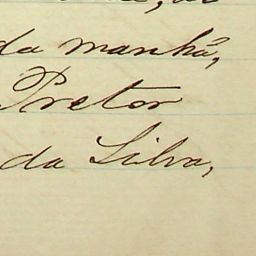 da manhã,
Pretor
da Silva,